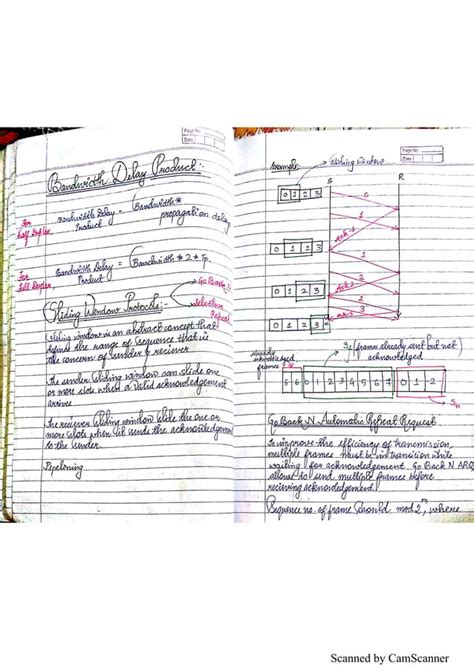 Page No.
Date
Bandwidth Delay Product:-
For Half Duplex
Bandwidth Delay Product = Bandwidth * propagation delay
For Full Duplex
Bandwidth Delay Product = Bandwidth * 2 * Tp
Sliding Window Protocols:-
Go Back N
Selective Repeat
Sliding window is an abstract concept that
defines the range of sequence that is
the concern of sender & reciever
The sender sliding window can slide one
or more slots when a valid acknowledgement
arrives
The reciever sliding window slide the one or
more slots when it sends the acknowledgement
to the sender.
Pipelining
Page No.
Date
Example:-
sliding window
S
R
0 1 2 3
0
ack 1
1
0 1 2 3
1
2
0 1 2 3
ack 2
3
0 1 2 3
ack 3
already acknowledged frames
Sf (frame already sent but not
acknowledged
5 6 0 1 2 3 4 5 6 7 0 1 - 2
Sn
Go Back N Automatic Repeat Request
To improve the efficiency of transmission
multiple frames must be in transition while
waiting for acknowledgement. Go Back N ARQ
allows to send multiple frames before
recieving acknowledgement
Sequence no. of frame should mod 2^m, where
Scanned by CamScanner